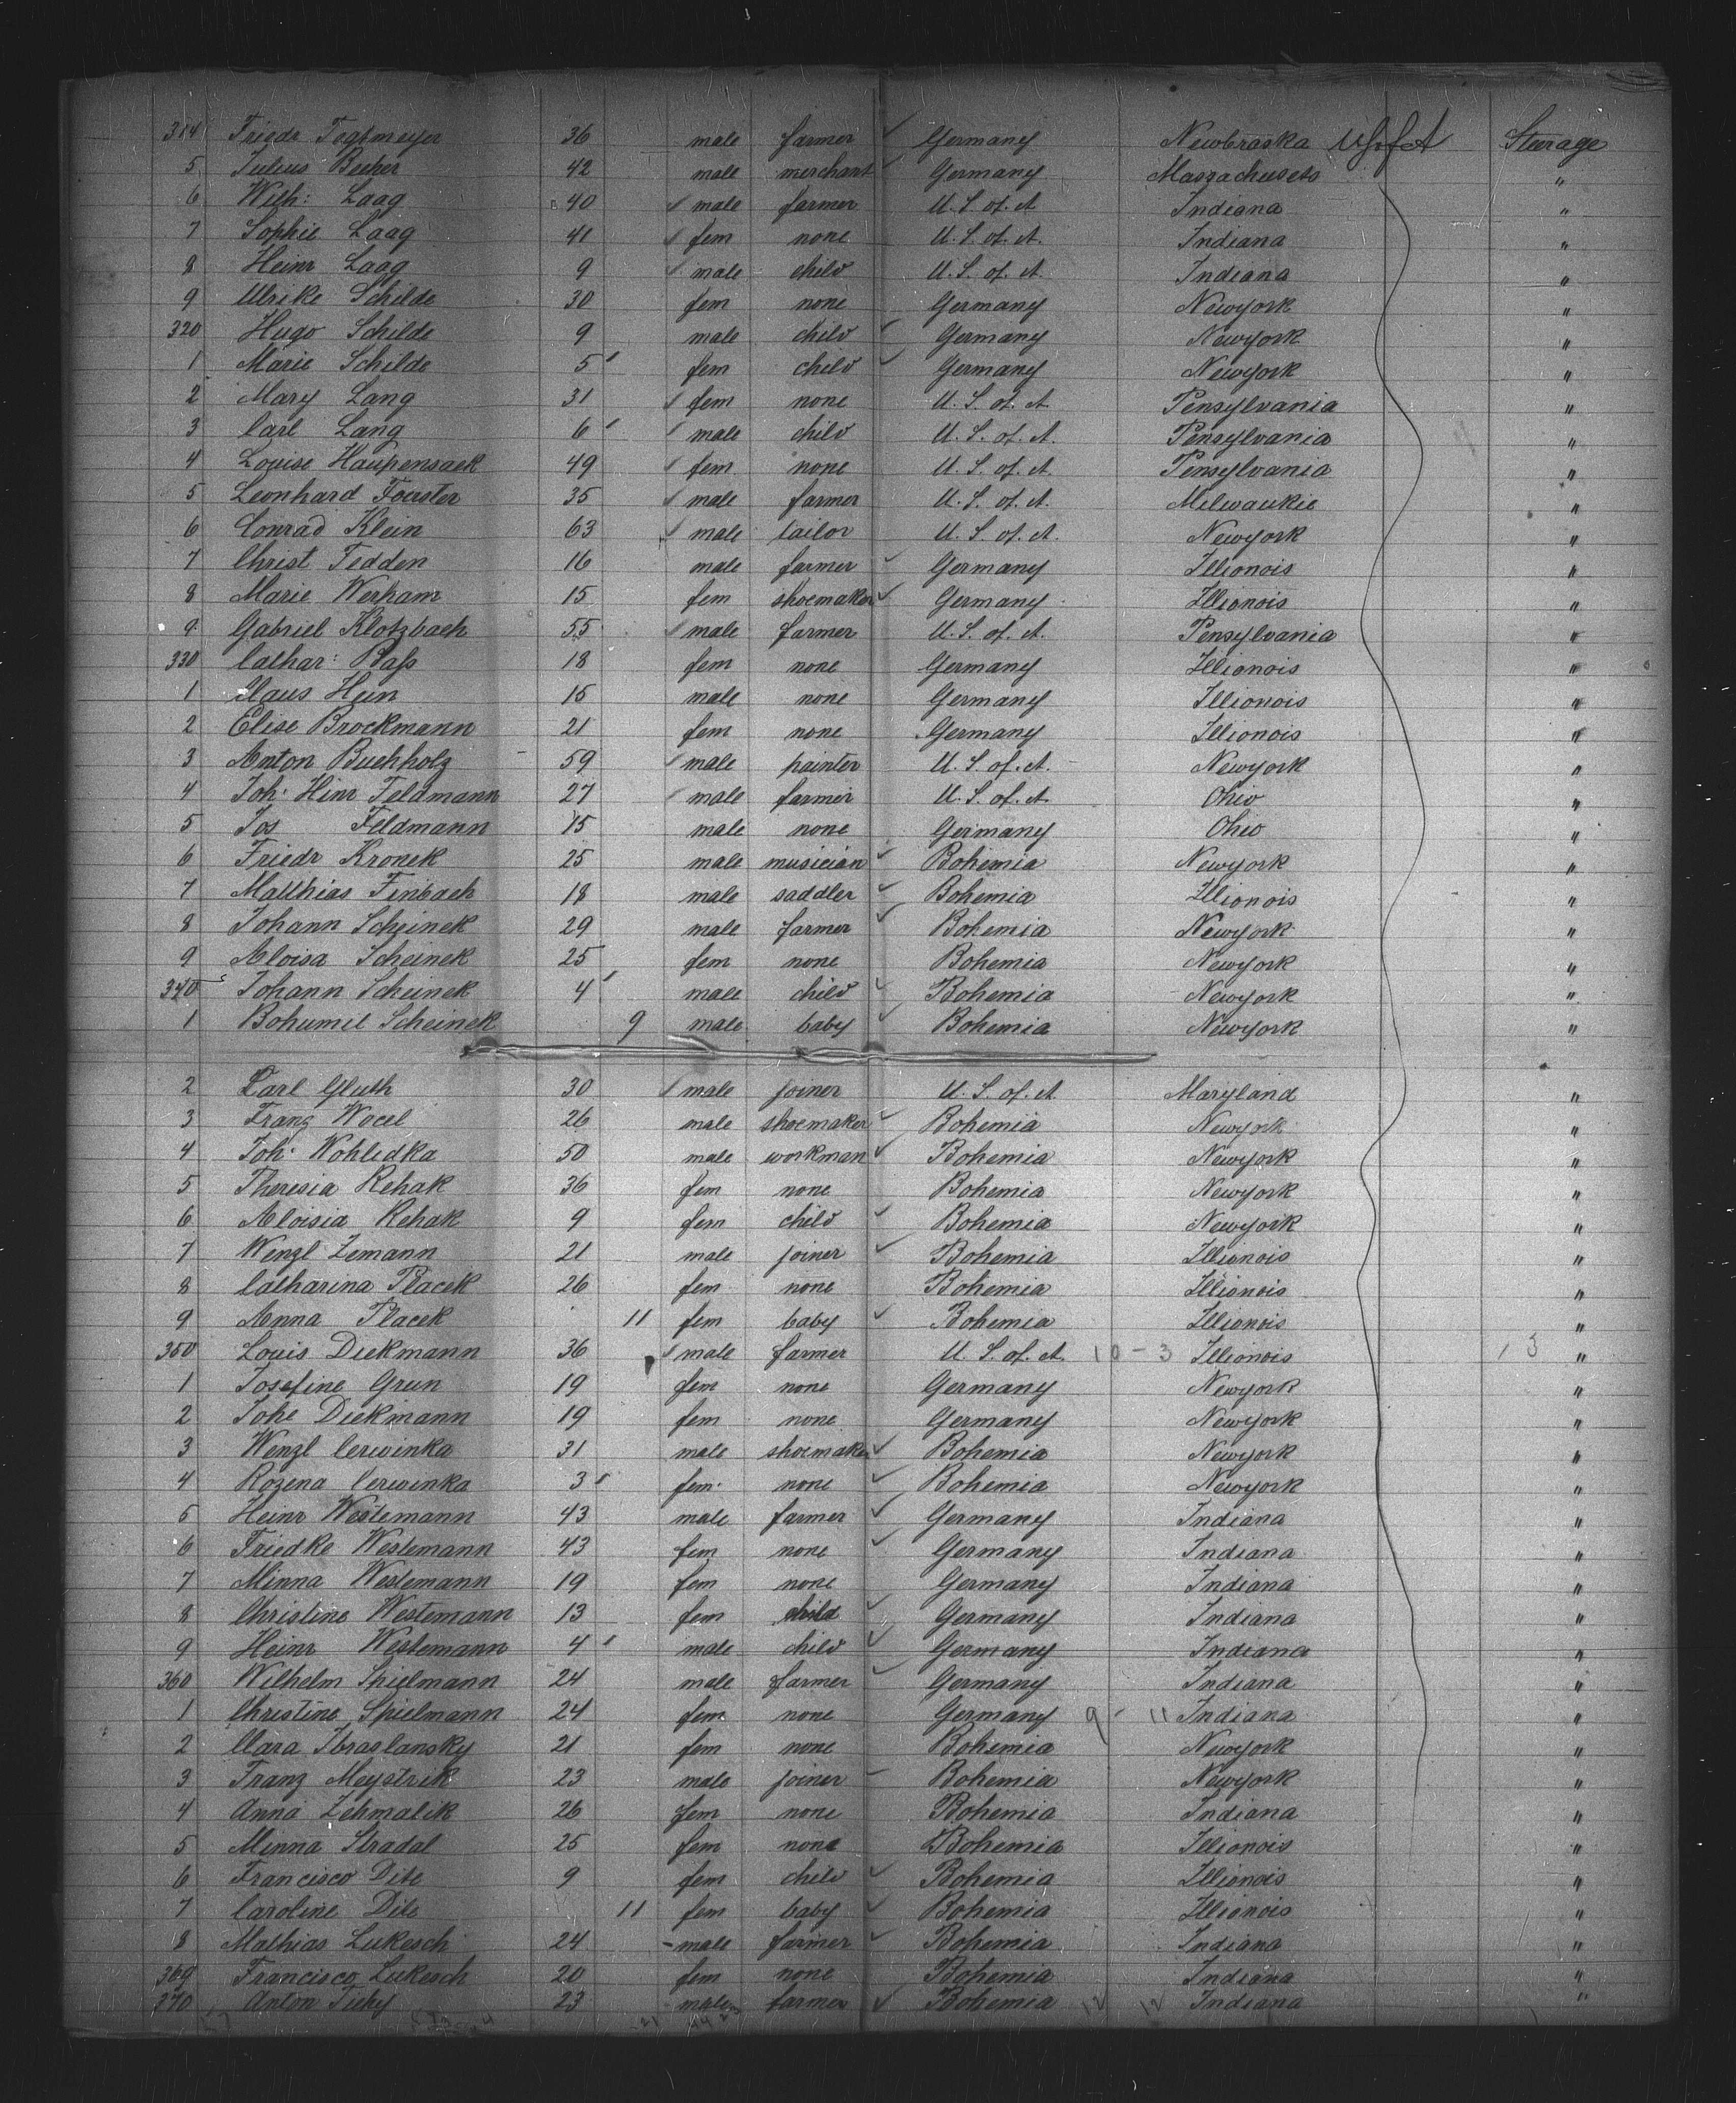 314 Friedr Tegtmeyer 36 male farmer Germany Newbraska U S of A Steerage
5 Julius Becker 42 male merchant Germany Massachusets "
6 Wilh: Laag 40 male farmer U. S. of. A Indiana "
7 Sophie Laag 41 fem none U. S. of. A. Indiana "
8 Heinr Laag 9 male child U. S. of. A. Indiana "
9 Ulrike Schilde 30 fem none Germany Newyork "
320 Hugo Schilde 9 male child Germany Newyork "
1 Marie Schilde 5 fem child Germany Newyork "
2 Mary Lang 31 fem none U. S. of. A. Pensylvania "
3 Carl Lang 6 male child U. S. of. A. Pensylvania "
4 Louise Haupensack 49 fem none U. S. of. A. Pensylvania "
5 Leonhard Foerster 35 male farmer U. S. of. A. Milwaukie "
6 Conrad Klein 63 male tailor U. S. of. A. Newyork "
7 Christ Tedden 16 male farmer Germany Illionois "
8 Marie Werham 15 fem shoemaker Germany Illionois "
9 Gabriel Klotzbach 55 male farmer U. S. of. A. Pensylvania "
330 Cathar: Bass 18 fem none Germany Illionois "
1 Claus Hein 15 male none Germany Illionois "
2 Elise Brockmann 21 fem none Germany Illionois "
3 Anton Buchholz 59 male painter U. S. of. A. Newyork "
4 Joh. Hinr Feldmann 27 male farmer U. S. of. A. Ohio "
5 Jos Feldmann 15 male none Germany Ohio "
6 Friedr Kronek 25 male musician Bohemia Newyork "
7 Matthias Finbach 18 male saddler Bohemia Illionois "
8 Johann Scheinek 29 male farmer Bohemia Newyork "
9 Aloisa Scheinek 25 fem none Bohemia Newyork "
340 Johann Scheinek 4 male child Bohemia Newyork "
1 Bohumil Scheinek 9 male baby Bohemia Newyork "
2 Carl Gluth 30 male joiner U. S. of. A Maryland "
3 Franz Wocel 26 male shoemaker Bohemia Newyork "
4 Joh. Wohledka 50 male workman Bohemia Newyork "
5 Theresia Rehak 36 fem none Bohemia Newyork "
6 Aloisia Rehak 9 fem child Bohemia Newyork "
7 Wenzl Zemann 21 male joiner Bohemia Illionois "
8 Catharina Placek 26 fem none Bohemia Illionois "
9 Anna Placek 11 fem baby Bohemia Illionois "
350 Louis Diekmann 36 male farmer U. S. of. A. 10-3 Illionois 3 "
1 Josefine Grun 19 fem none Germany Newyork "
2 Johe Diekmann 19 fem none Germany Newyork "
3 Wenzl Cerwinka 31 male shoemaker Bohemia Newyork "
4 Rozena Cerwinka 3 fem. none Bohemia Newyork "
5 Heinr Westemann 43 male farmer Germany Indiana "
6 Friedke Westemann 43 fem none Germany Indiana "
7 Minna Westemann 19 fem none Germany Indiana "
8 Christine Westemann 13 fem child Germany Indiana "
9 Heinr Westemann 4 male child Germany Indiana "
360 Wilhelm Spielmann 24 male farmer Germany Indiana "
1 Christine Spielmann 24 fem none Germany 9-11 Indiana "
2 Clara Zbraslansky 21 fem none Bohemia Newyork "
3 Franz Meystrik 23 male joiner Bohemia Newyork "
4 Anna Zehmalik 26 fem none Bohemia Indiana "
5 Minna Stradal 25 fem none Bohemia Illionois "
6 Francisco Dite 9 fem child Bohemia Illionois "
7 Caroline Dite 11 fem baby Bohemia Illionois "
8 Mathias Lukesch 24 male farmer Bohemia Indiana "
369 Francisco Lukesch 20 fem none Bohemia Indiana "
370 Anton Tichy 23 male farmer Bohemia 12 12 Indiana "